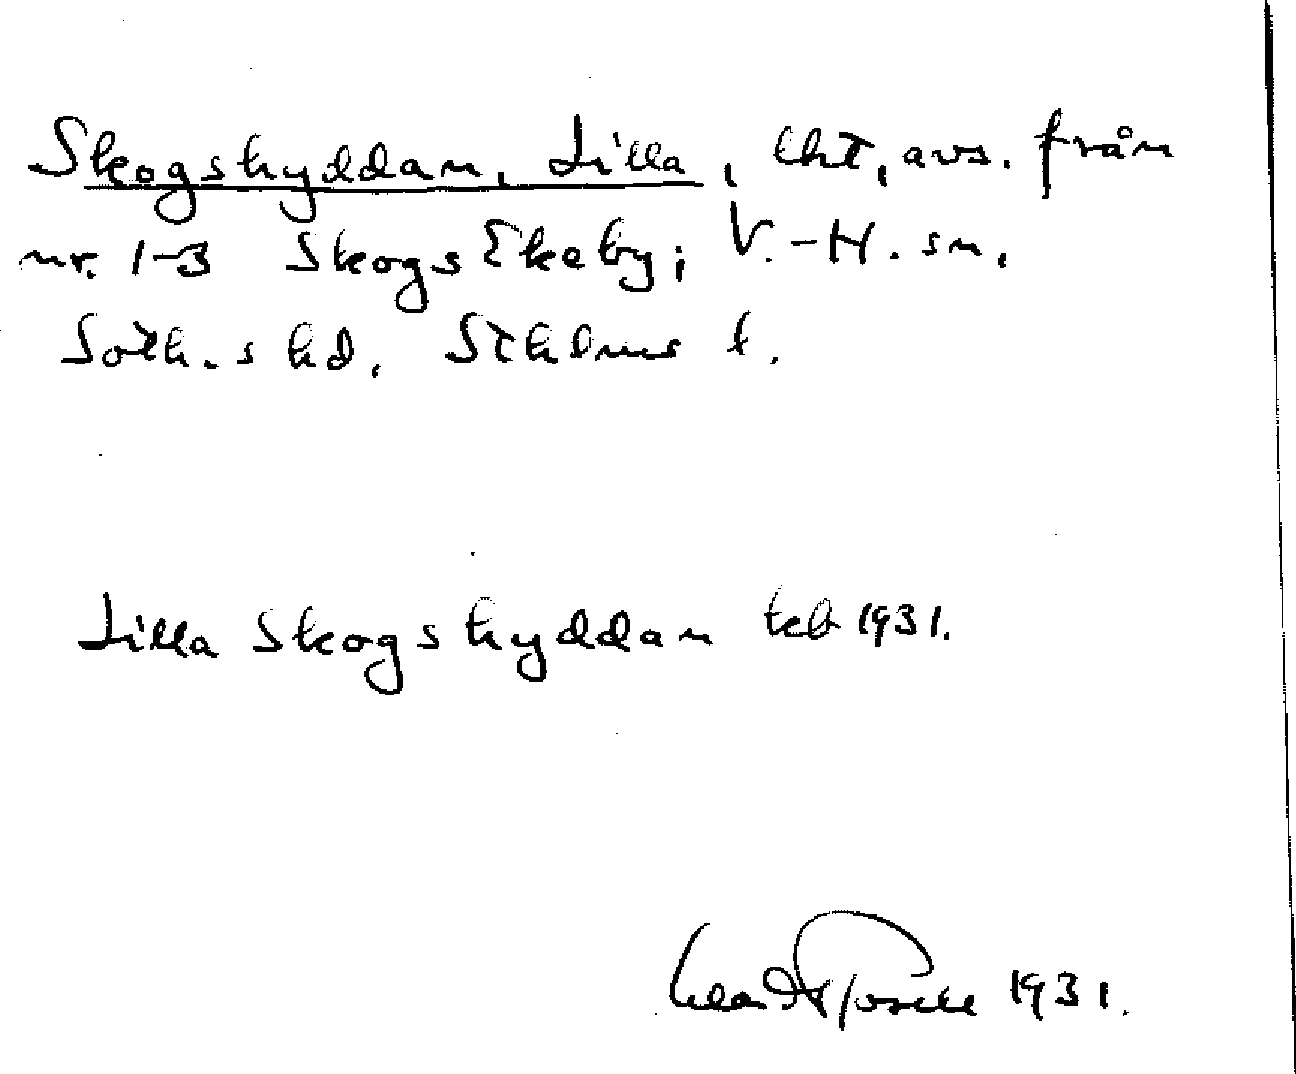 Skogshyddan, Lilla, lht, avs. från
nr. 1-3 Skogs Ekeby; V.-H. sn.
Soth.s hd. Sthlms l.
Lilla Skogshyddan teb 1931.
1931.